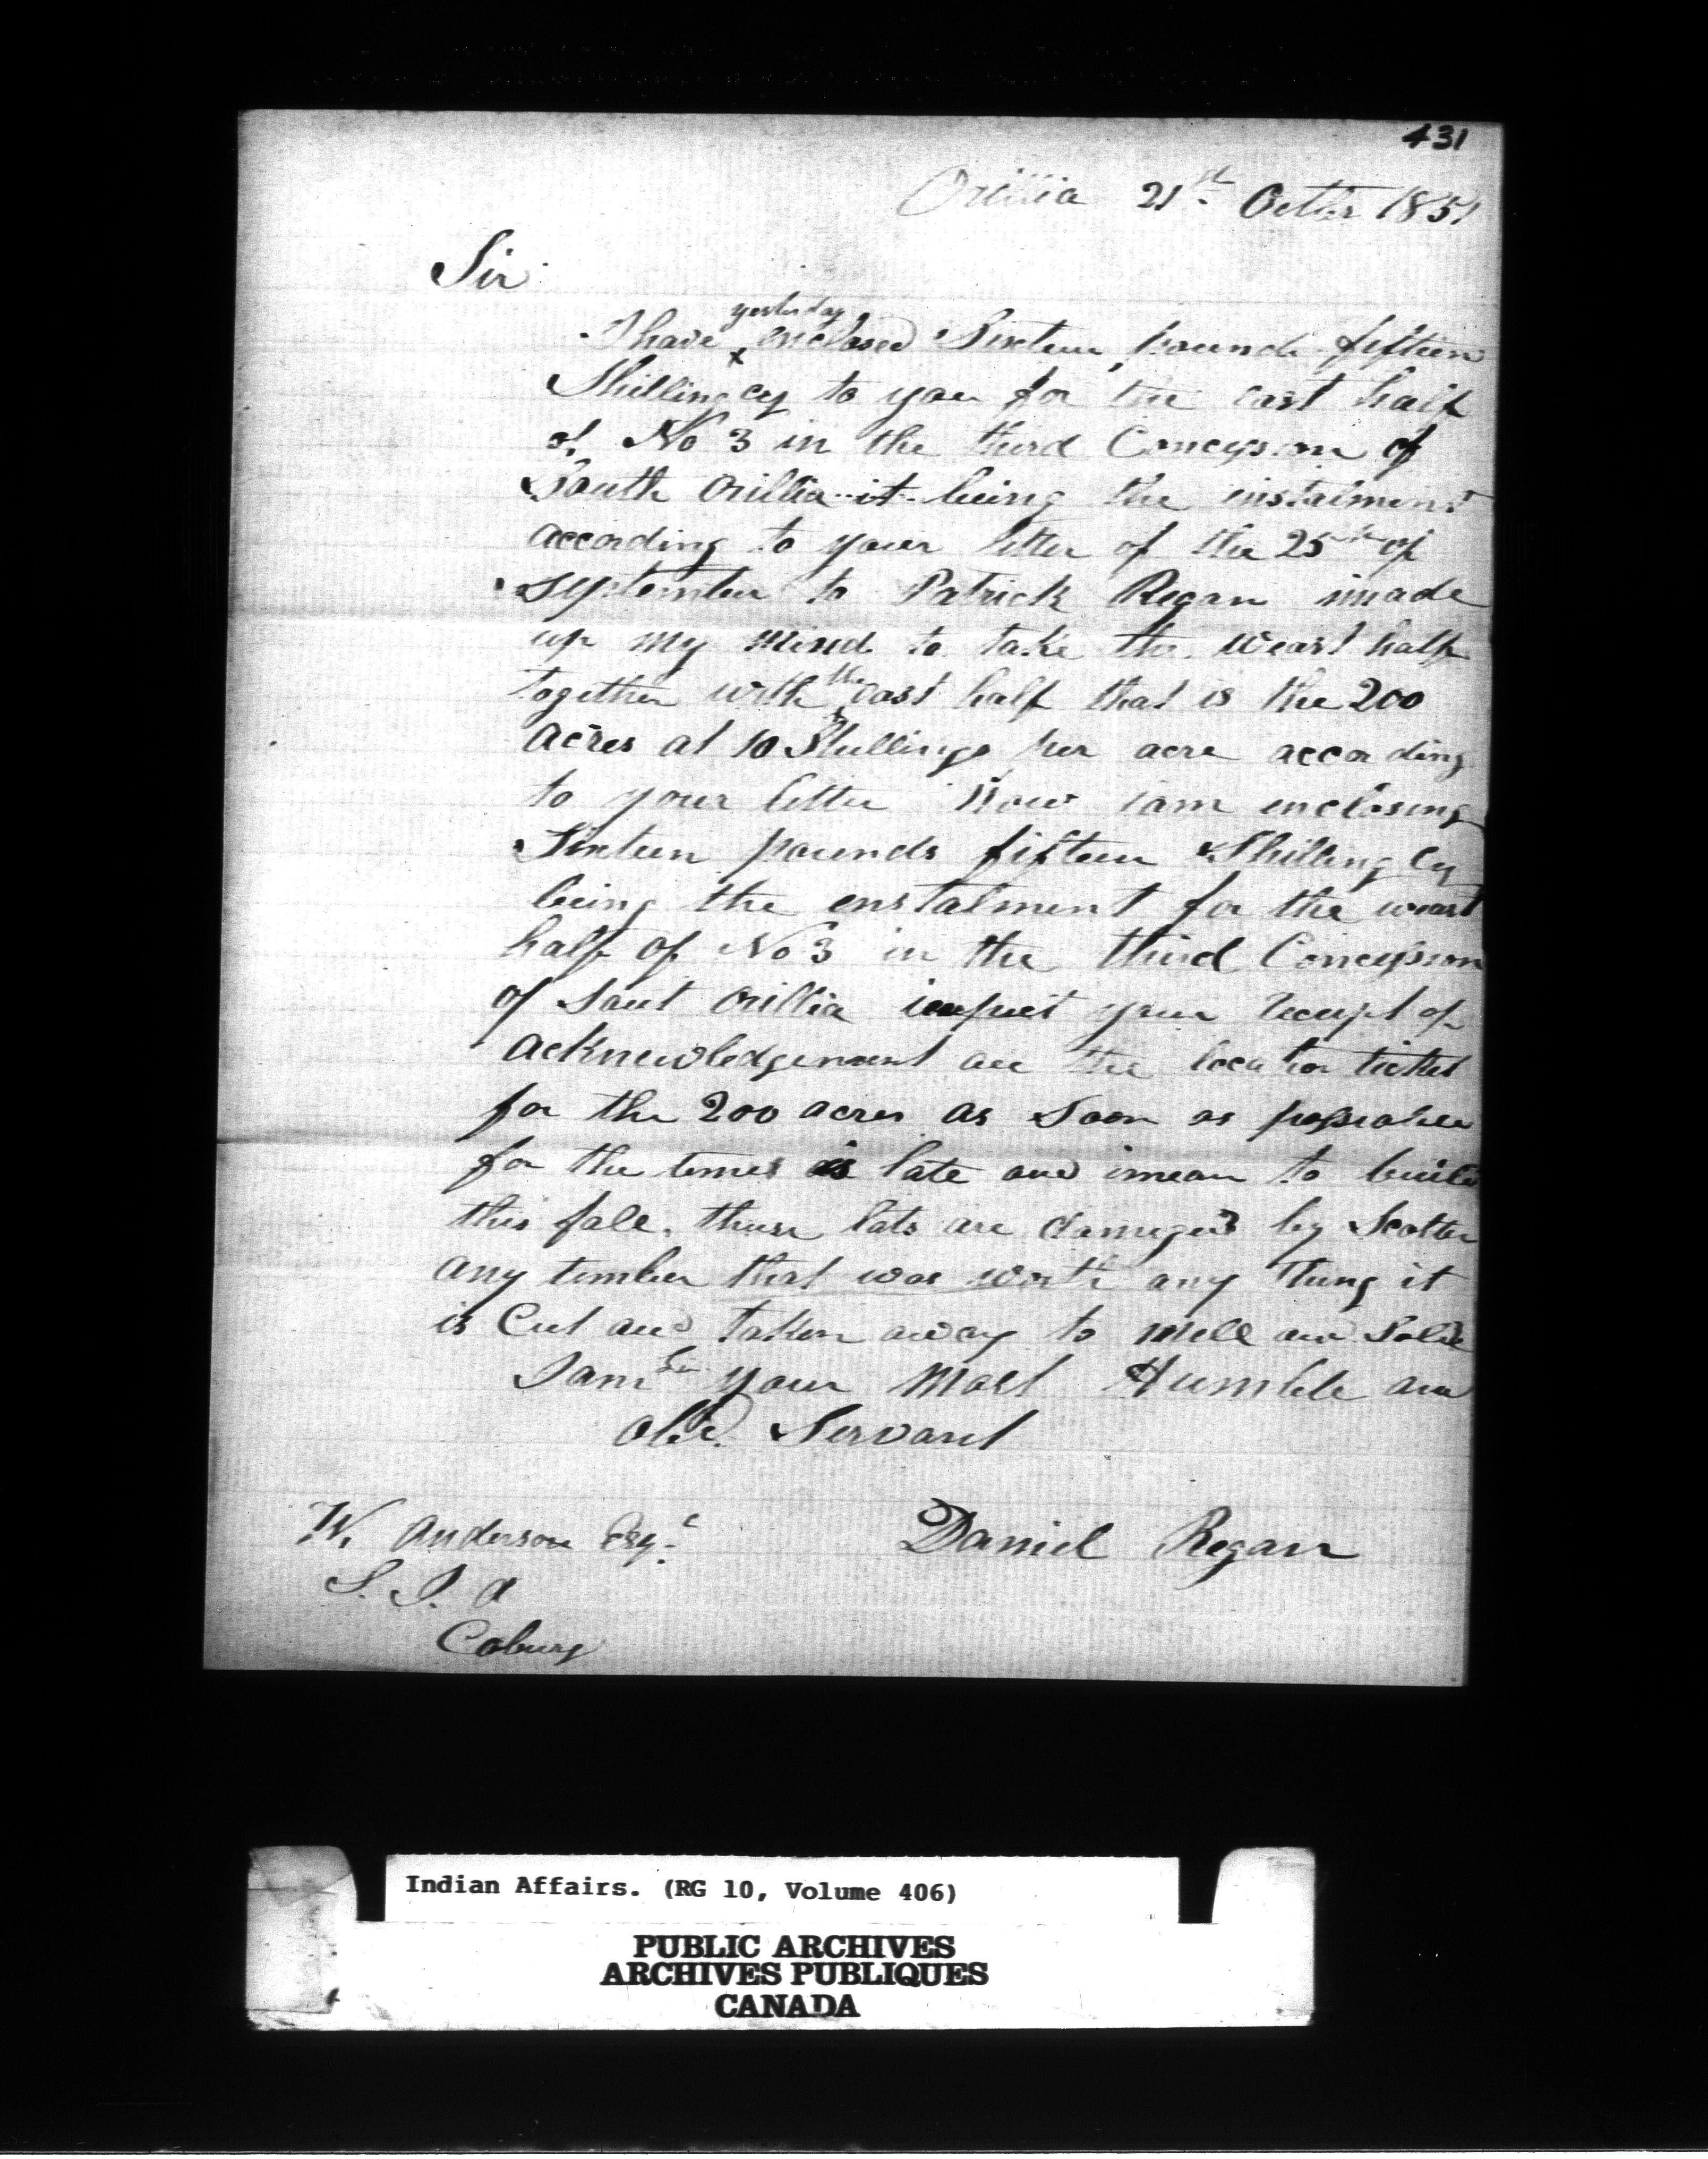 431
Orillia 21st Octbr 1851
Sir
yesterday
I have x enclosed Sixteen pounds fifteen
Shilling cy to you for the east half
of No 3 in the third Concession of
South Orillia it being the instalment
according to your letter of the 25th of
September to Patrick Regan imade
up my mind to take the weast half
together with the east half that is the 200
acres at 10 Shillings per acre according
to your letter Now iam enclosing
Sixteen pounds fifteen Shilling Cy
being the enstalment for the weast
half of No 3 in the third Concession
of Sout Orillia your receipt of
acknewledgement the location ticket
for the 200 acres as Soon as
for the times is late and imean to build
this fall. these lots are damaged by
any timber that was worth any thing it
is Cut and taken away to mill and Solde
I am Sir your Most Humble and
obd. Servant
W. Anderson Esqr
Daniel Regan
S. I. A
Coburg
Indian Affairs. (RG 10, Volume 406)
PUBLIC ARCHIVES
ARCHIVES PUBLIQUES
CANADA